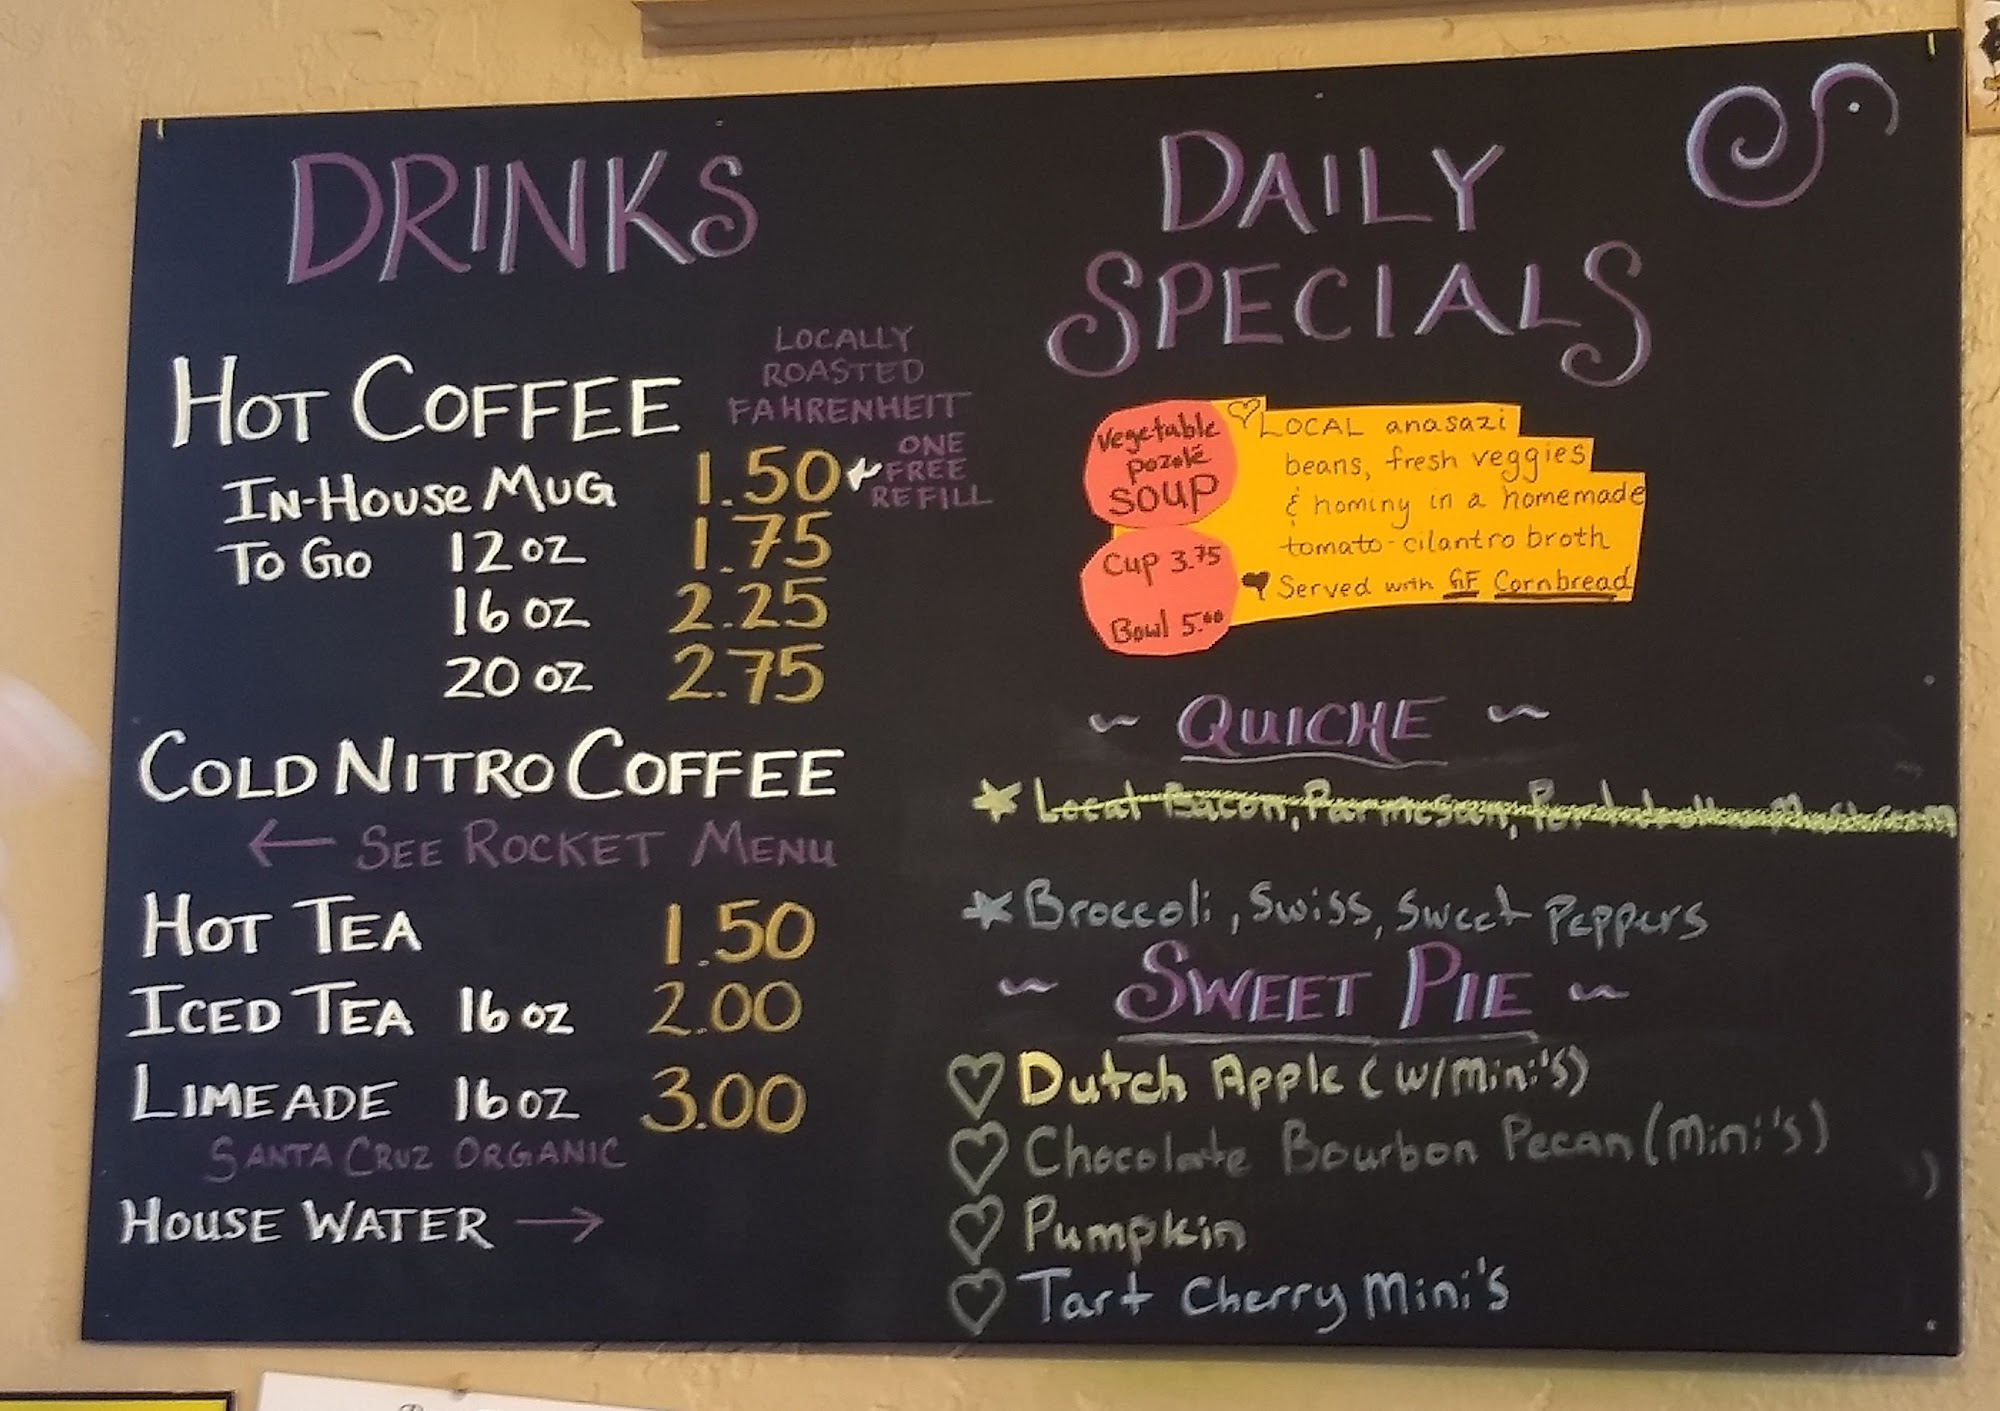 DRINKS
HOT COFFEE
LOCALLY
ROASTED
FAHRENHEIT
IN-HOUSE MUG 1.50
ONE
FREE
REFILL
TO GO 12 OZ 1.75
16 OZ 2.25
20 OZ 2.75
COLD NITRO COFFEE
← SEE ROCKET MENU
HOT TEA 1.50
ICED TEA 16 OZ 2.00
LIMEADE 16 OZ 3.00
SANTA CRUZ ORGANIC
HOUSE WATER →
DAILY
SPECIALS
Vegetable
pozole
SOUP
Cup 3.75
Bowl 5.00
♡ LOCAL anasazi
beans, fresh veggies
& hominy in a homemade
tomato-cilantro broth
♥ Served with GF Cornbread
~ QUICHE ~
★ Local Bacon, Parmesan, Portobello Mushroom
★ Broccoli, Swiss, Sweet Peppers
~ SWEET PIE ~
♡ Dutch Apple (w/Mini's)
♡ Chocolate Bourbon Pecan (Mini's)
)
♡ Pumpkin
♡ Tart Cherry Mini's